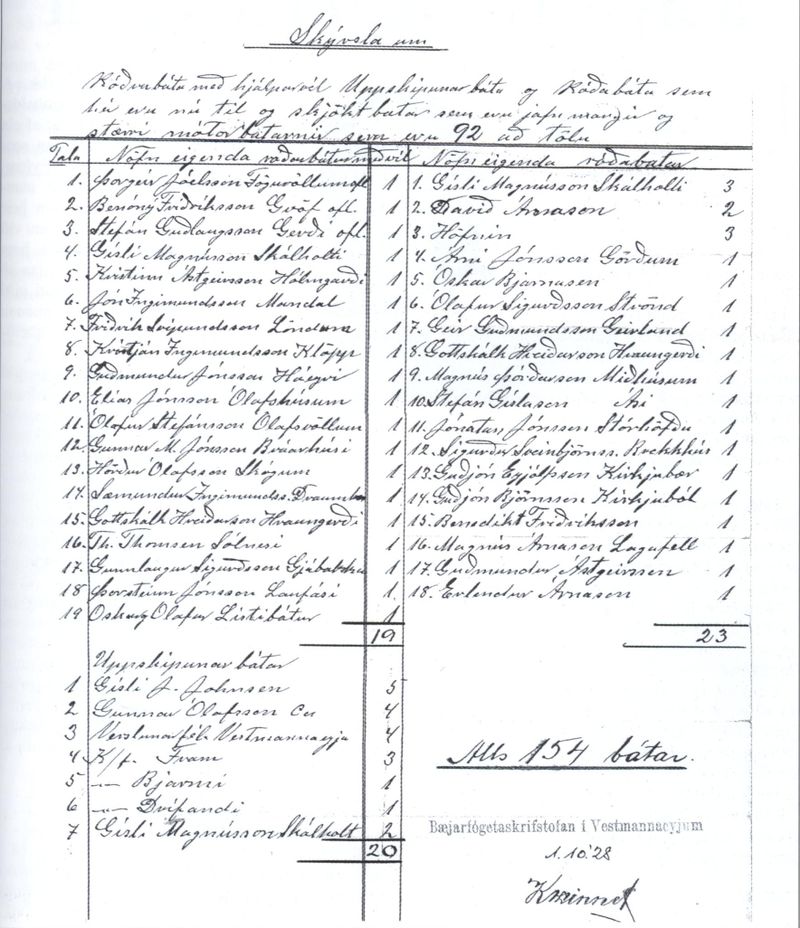 Skýrsla um
Róðrabáta með hjálparvél Uppskipunar báta og Róðabáta sem
hér eru nú til og skjökt batar sem eru jafn margir og
stærri mótorbátarnir sem eru 92 að tölu
Tala Nöfn eigenda roðarbátur með vél
1. Þorgeir Jóelsson Fögruvöllum ofl 1
2. Benóný Friðriksson Gröf ofl. 1
3. Stefán Guðlaugsson Gerði ofl. 1
4. Gísli Magnússon Skálholti 1
5. Kristinn Ástgeirsson Hólmgarði 1
6. Jón Ingimundsson Mandal 1
7. Friðrik Svipmundsson Löndum 1
8. Kristján Ingimundsson Klöpp 1
9. Guðmundur Jónsson Háeyri 1
10. Elías Jónsson Ólafshúsum 1
11. Ólafur Stefánsson Ólafsvöllum 1
12. Gunnar M. Jónsson Brúarhúsi 1
13. Hörður Ólafsson Skógum 1
14. Sæmundur Ingimundss. 1
15. Gottskálk Hreiðarson Hraungerði 1
16. Th. Thomsen Sólnesi 1
17. Gunnlaugur Sigurðsson Gjábakka 1
18 Þorsteinn Jónsson Laufási 1.
19 Oskar og Ólafur Listibátur 1
19
Uppskipunar bátar
1 Gísli J. Johnsen 5
2 Gunnar Ólafsson Co 4
3 Verslunarfél. Vestmannaeyja 4
4 K/f. Fram 3
5 -"- Bjarmi 1
6 -"- Drífandi 1
7 Gísli Magnússon Skálholt 2
20
Nöfn eigenda róðabatar
1. Gísli Magnússon Skálholti 3
2. Davið Árnason 2
3. Höfnin 3
4. Árni Jónsson Görðum 1
5. Óskar Bjarnasen 1
6. Ólafur Sigurðsson Strönd 1
7. Geir Guðmundsson Geirland 1
8. Gottskálk Hreiðarson Hraungerði 1
9. Magnús Þórðarson Miðhúsum 1
10. Stefán Gíslason Ási 1
11. Jónatan Jónsson Stórhöfða 1
12. Sigurður Sveinbjörnss. Brekkhús 1
13. Guðjón Eyjólfsson Kirkjubær 1
14. Guðjón Björnsson Kirkjuból 1
15. Benedikt Friðriksson 1
16. Magnús Árnason Lagafell 1
17. Guðmundur Ástgeirsson 1
18. Erlendur Árnason 1
23
Alls 154 bátar.
Bæjarfógetaskrifstofan í Vestmannaeyjum
1.10.'28